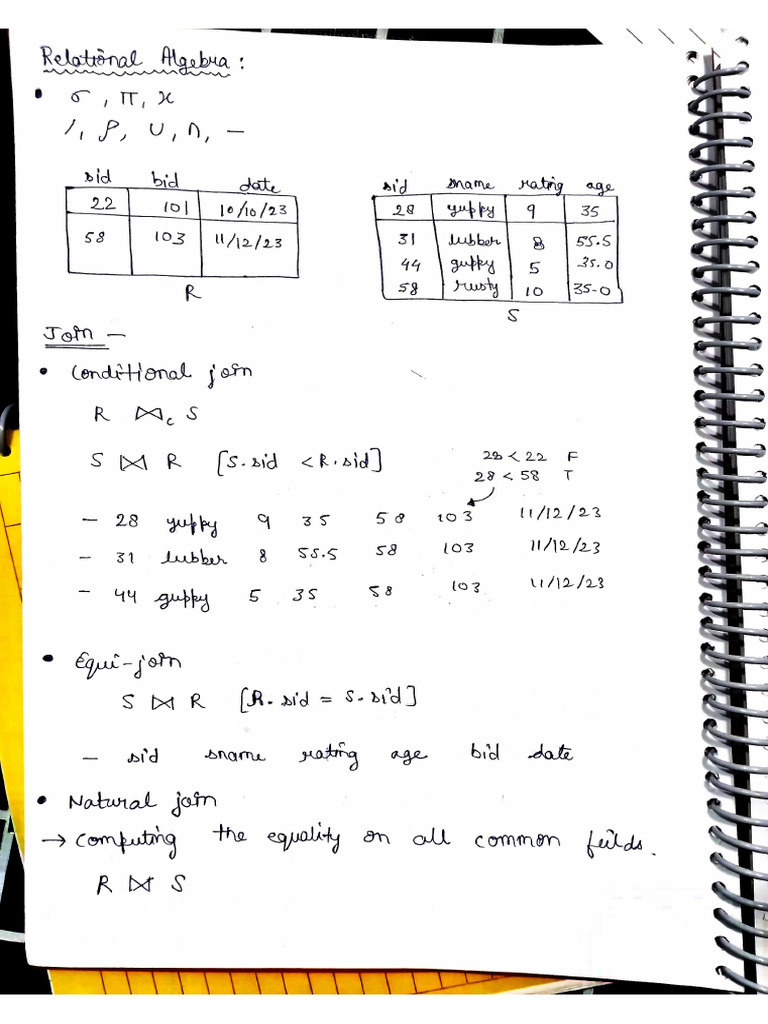 Relational Algebra :
• σ , π, x
/, ρ, ∪, ∩, —
sid bid date
22 101 10/10/23
58 103 11/12/23
R
sid sname rating age
28 yuppy 9 35
31 lubber 8 55.5
44 guppy 5 35.0
58 rusty 10 35.0
S
Join —
• Conditional join
R ⋈c S
S ⋈ R [S.sid < R.sid]
28 < 22 F
28 < 58 T
— 28 yuppy 9 35 58 103 11/12/23
— 31 lubber 8 55.5 58 103 11/12/23
— 44 guppy 5 35 58 103 11/12/23
• Equi-join
S ⋈ R [R.sid = S.sid]
— sid sname rating age bid date
• Natural join
→ Computing the equality on all common feilds.
R ⋈ S